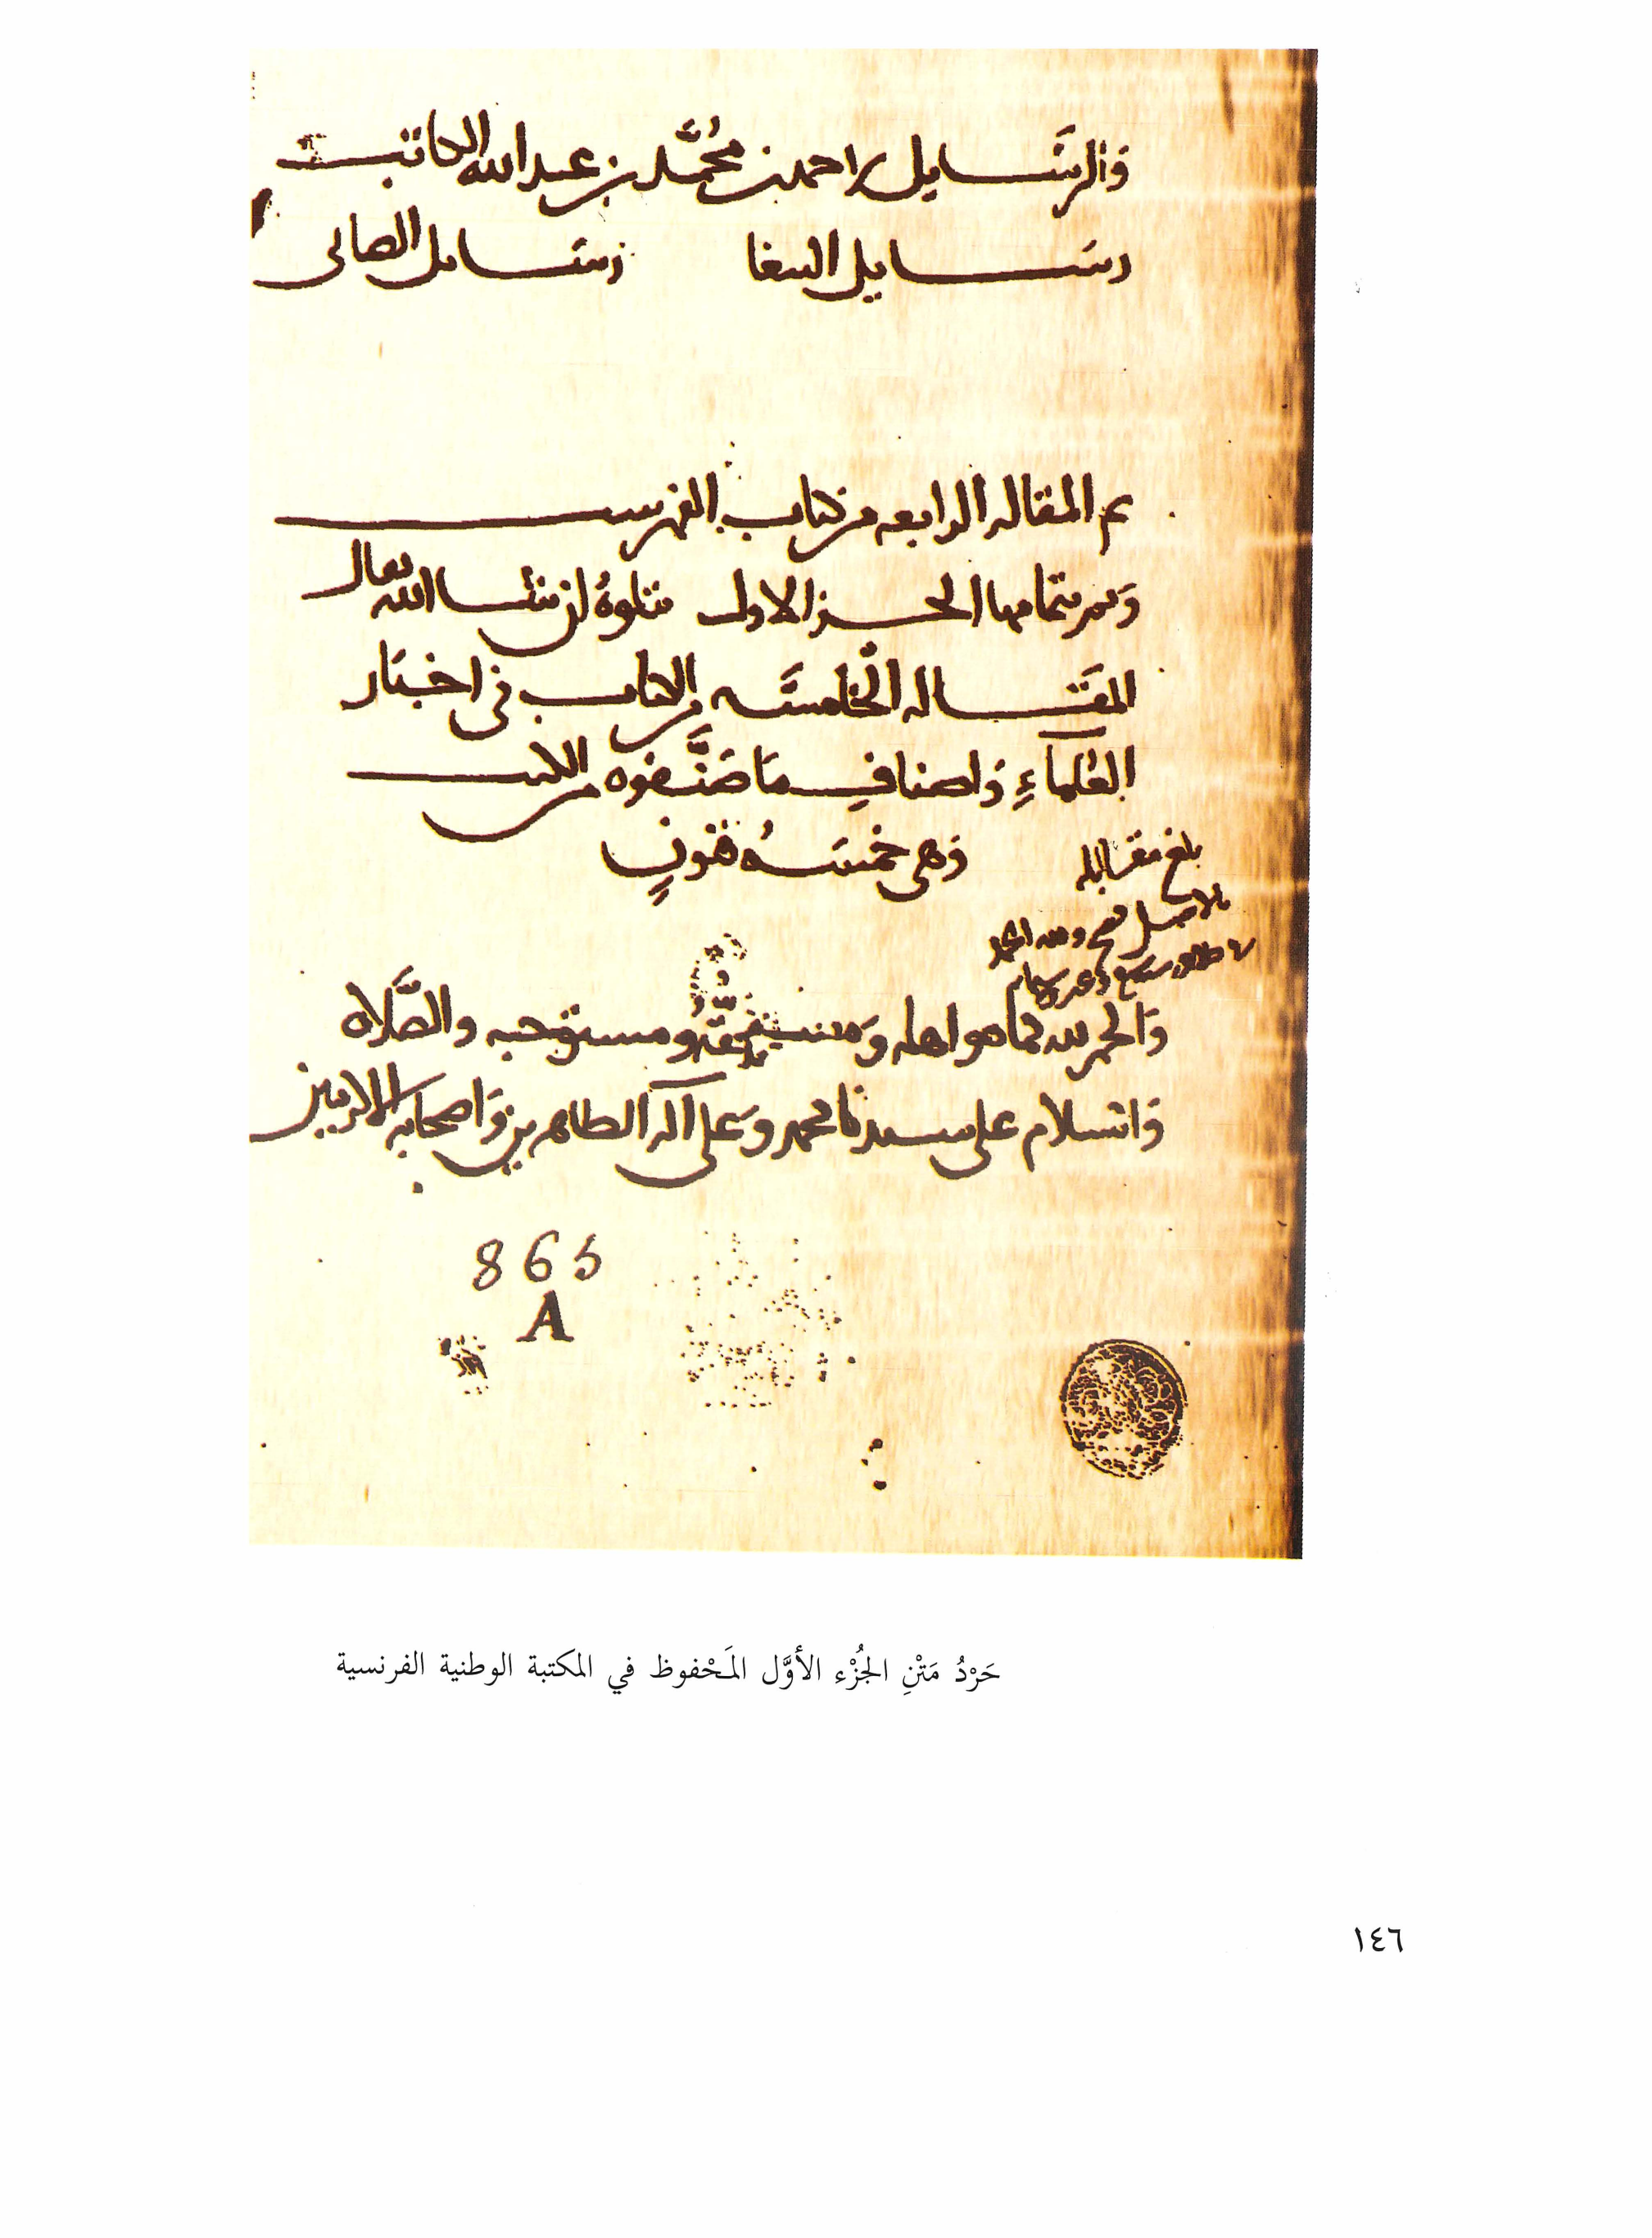 وَالرسَايل لاحمد بن محُمَّد بن عبد الله الكاتب
رسَايل الببغا رسَايل الصابى
تم المقاله الرابعه من كتاب الفهرست
وَتم بتمامها الجزالاول يتلوهُ ان شا الله تعالى
المقَاله الخامسَه من الكتاب فى اخبَار
العُلماءِ وَاصنافِ مَا صَنَّفوه من الكتب
وَهى خمسَهُ فنونٍ
بلغ مقابله
بالاصل فصح ولله الحمد
وَالحمد لله كما هو اهله وَمستحقّهُ ومستوجبه والصَّلاه
وَالسلام على سيدنا محمد وَعلى آله الطاهرين وَاصحابه الاكرمين
865
A
حَرْدُ مَتْنِ الجُزْء الأوَّل المَحْفوظ في المكتبة الوطنية الفرنسية
١٤٦